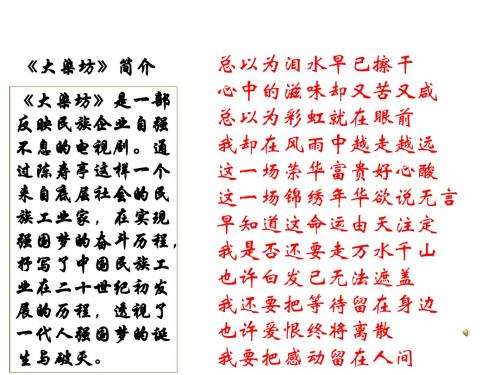 《大染坊》简介
《大染坊》是一部
反映民族企业自强
不息的电视剧。通
过陈寿亭这样一个
来自底层社会的民
族工业家，在实现
强国梦的奋斗历程，
抒写了中国民族工
业在二十世纪初发
展的历程，透视了
一代人强国梦的诞
生与破灭。
总以为泪水早已擦干
心中的滋味却又苦又咸
总以为彩虹就在眼前
我却在风雨中越走越远
这一场荣华富贵好心酸
这一场锦绣年华欲说无言
早知道这命运由天注定
我是否还要走万水千山
也许白发已无法遮盖
我还要把等待留在身边
也许爱恨终将离散
我要把感动留在人间